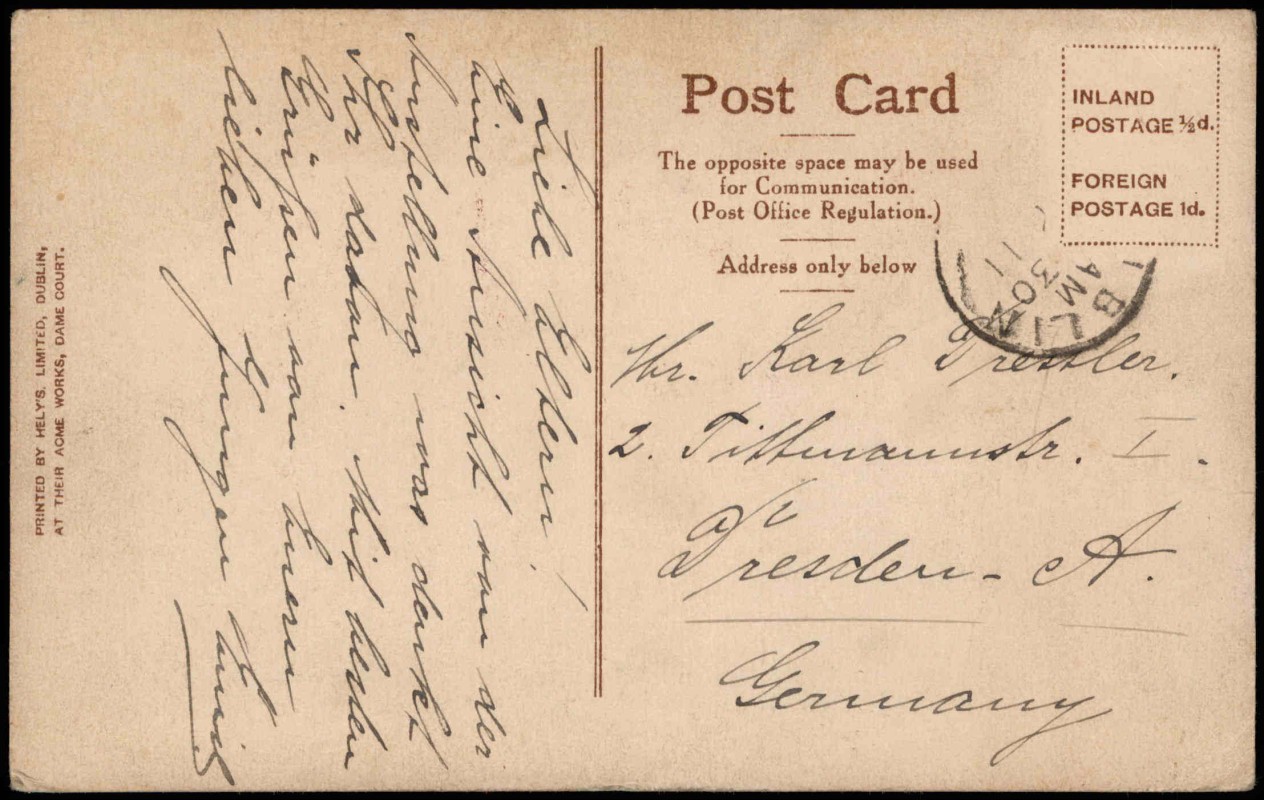 Liebe Eltern!
Eine Ansicht von der
Ausstellung was denkt
Ihr davon. Mit besten
Grüßen von Euern
lieben Jungen
Post Card
The opposite space may be used
for Communication.
(Post Office Regulation.)
Address only below
INLAND
POSTAGE ½d.
FOREIGN
POSTAGE 1d.
BLIN
AM
30
11
Hr. Karl Dressler.
2. Tittmannstr. I.
Dresden - A.
Germany
PRINTED BY HELY'S, LIMITED, DUBLIN,
AT THEIR ACME WORKS, DAME COURT.